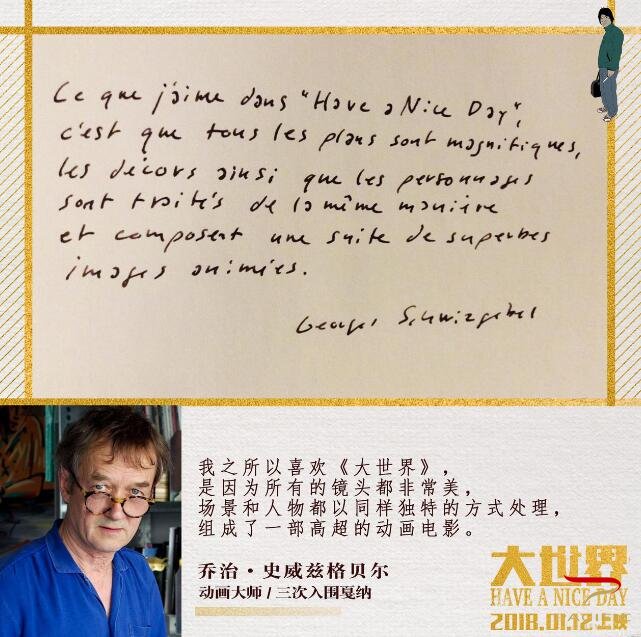 Ce que j'aime dans "Have a Nice Day",
c'est que tous les plans sont magnifiques,
les décors ainsi que les personnages
sont traités de la même manière
et composent une suite de superbes
images animées.
Georges Schwizgebel
我之所以喜欢《大世界》,
是因为所有的镜头都非常美,
场景和人物都以同样独特的方式处理,
组成了一部高超的动画电影。
乔治·史威兹格贝尔
动画大师/三次入围戛纳
大世界
HAVE A NICE DAY
2018.01.12上映